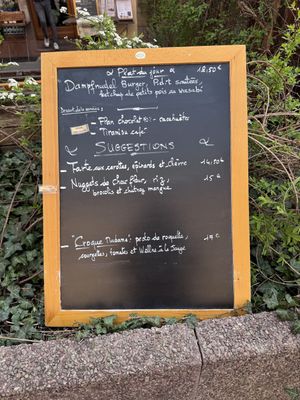 Plat du jour 18.50€
Dampfnudel Burger, P.d.t sautées
ketchup de petits pois au wasabi
Dessert de la semaine :
- Flan chocolat - cacahuète
- Tiramisu café
SUGGESTIONS
- Tarte aux carottes, épinards et chèvre 14.50€
- Nuggets de chou fleur, riz, 15€
brocolis et chutney mangue
- "Croque Madame": pesto de roquette, 17€
courgettes, tomates et à la Sauge